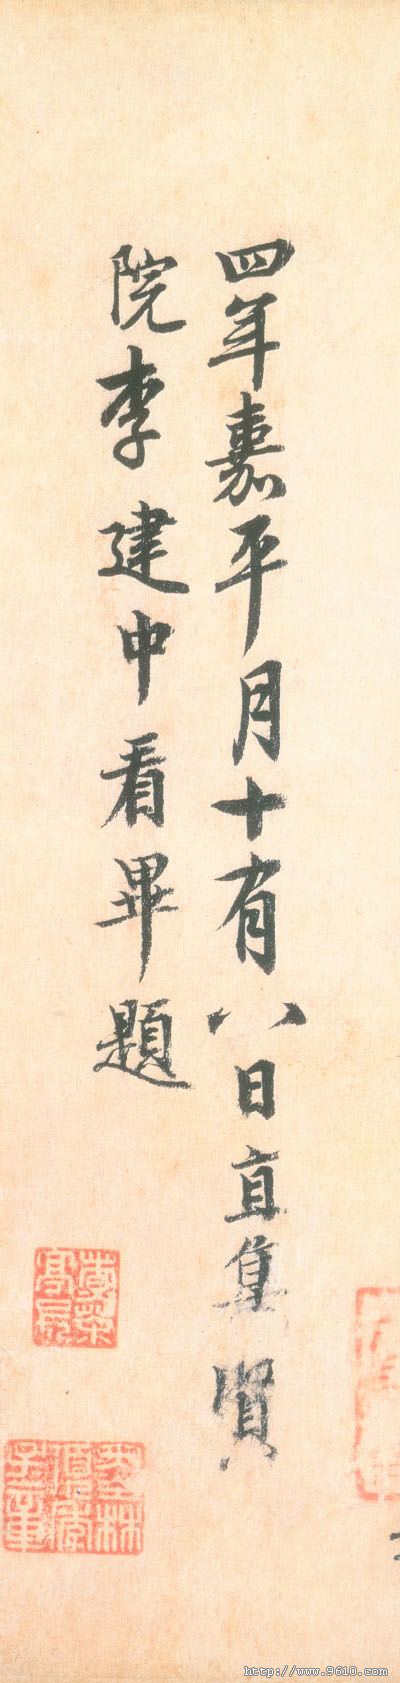 四年嘉平月十有八日直集賢
院李建中看畢題
http://www.9610.com